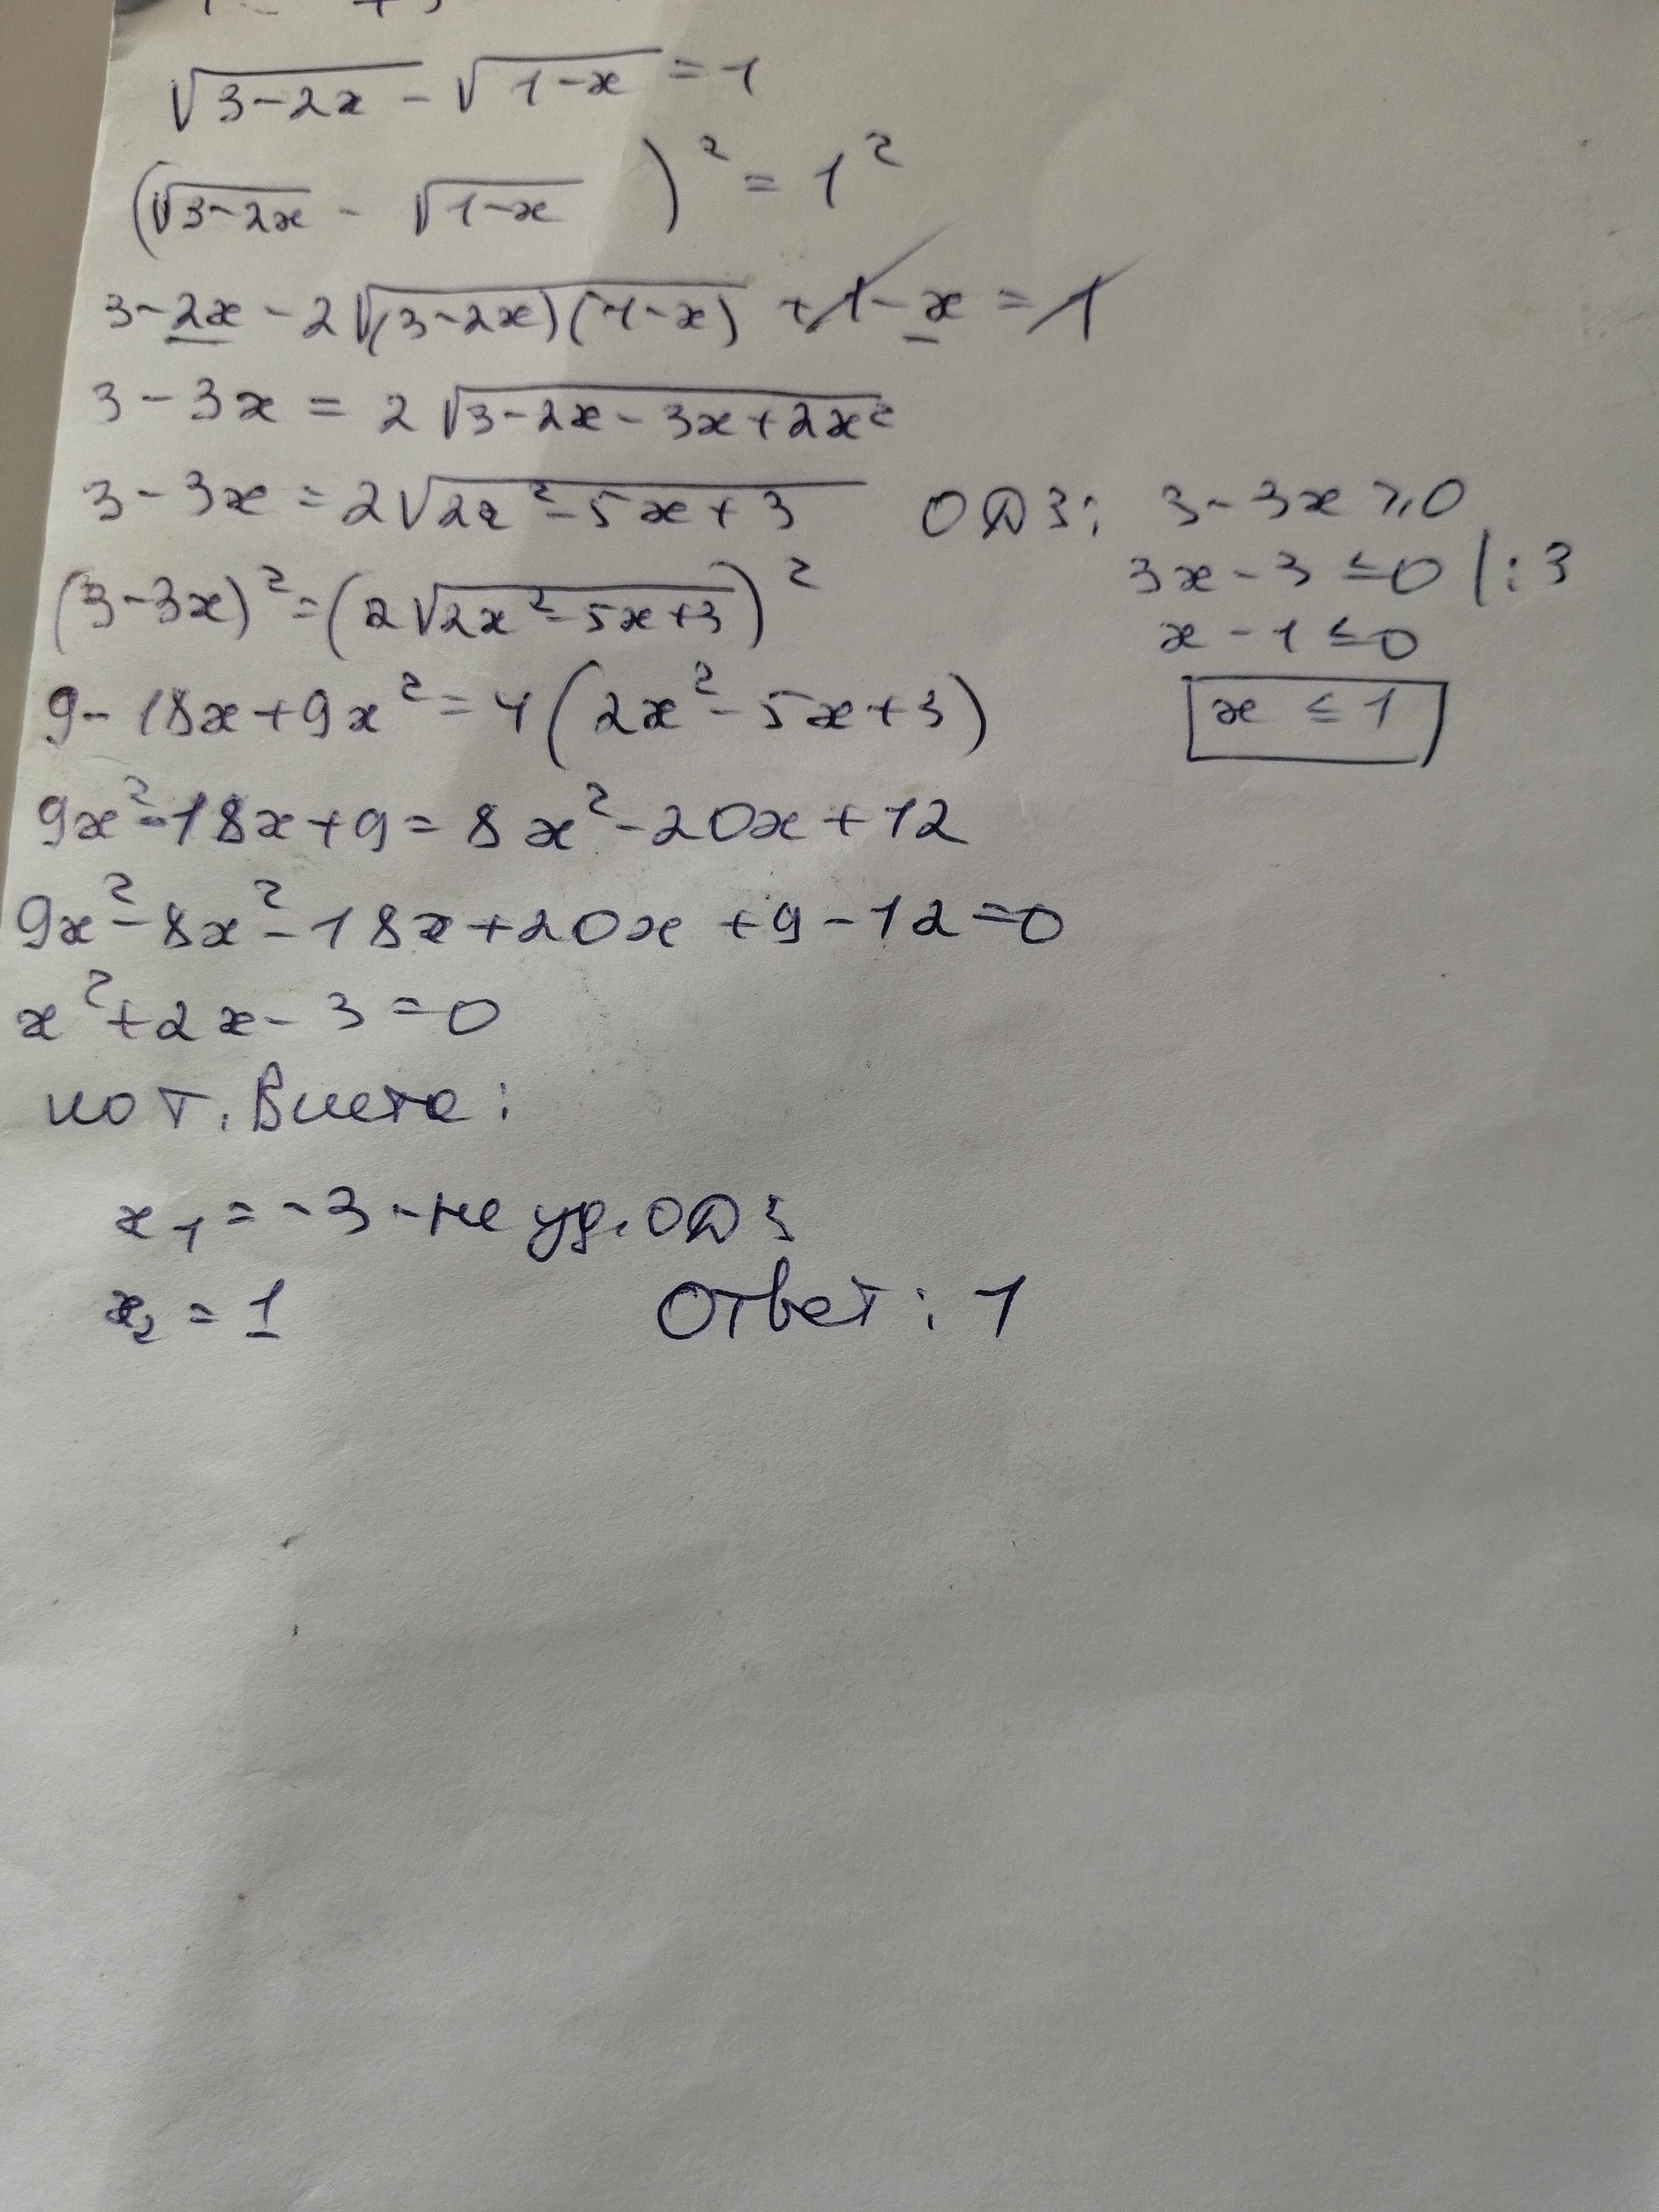 √3-2x - √1-x = 1
(√3-2x - √1-x )² = 1²
3-2x - 2√(3-2x)(1-x) + 1 - x = 1
3 - 3x = 2√3-2x-3x+2x²
3 - 3x = 2√2x²-5x+3 ОДЗ: 3-3x ≥ 0
3x - 3 ≤ 0 | : 3
(3-3x)² = (2√2x²-5x+3)²
x - 1 ≤ 0
9 - 18x + 9x² = 4(2x² - 5x + 3)
x ≤ 1
9x² - 18x + 9 = 8x² - 20x + 12
9x² - 8x² - 18x + 20x + 9 - 12 = 0
x² + 2x - 3 = 0
по т. Виета:
x₁ = -3 - не уд. ОДЗ
x₂ = 1 Ответ: 1